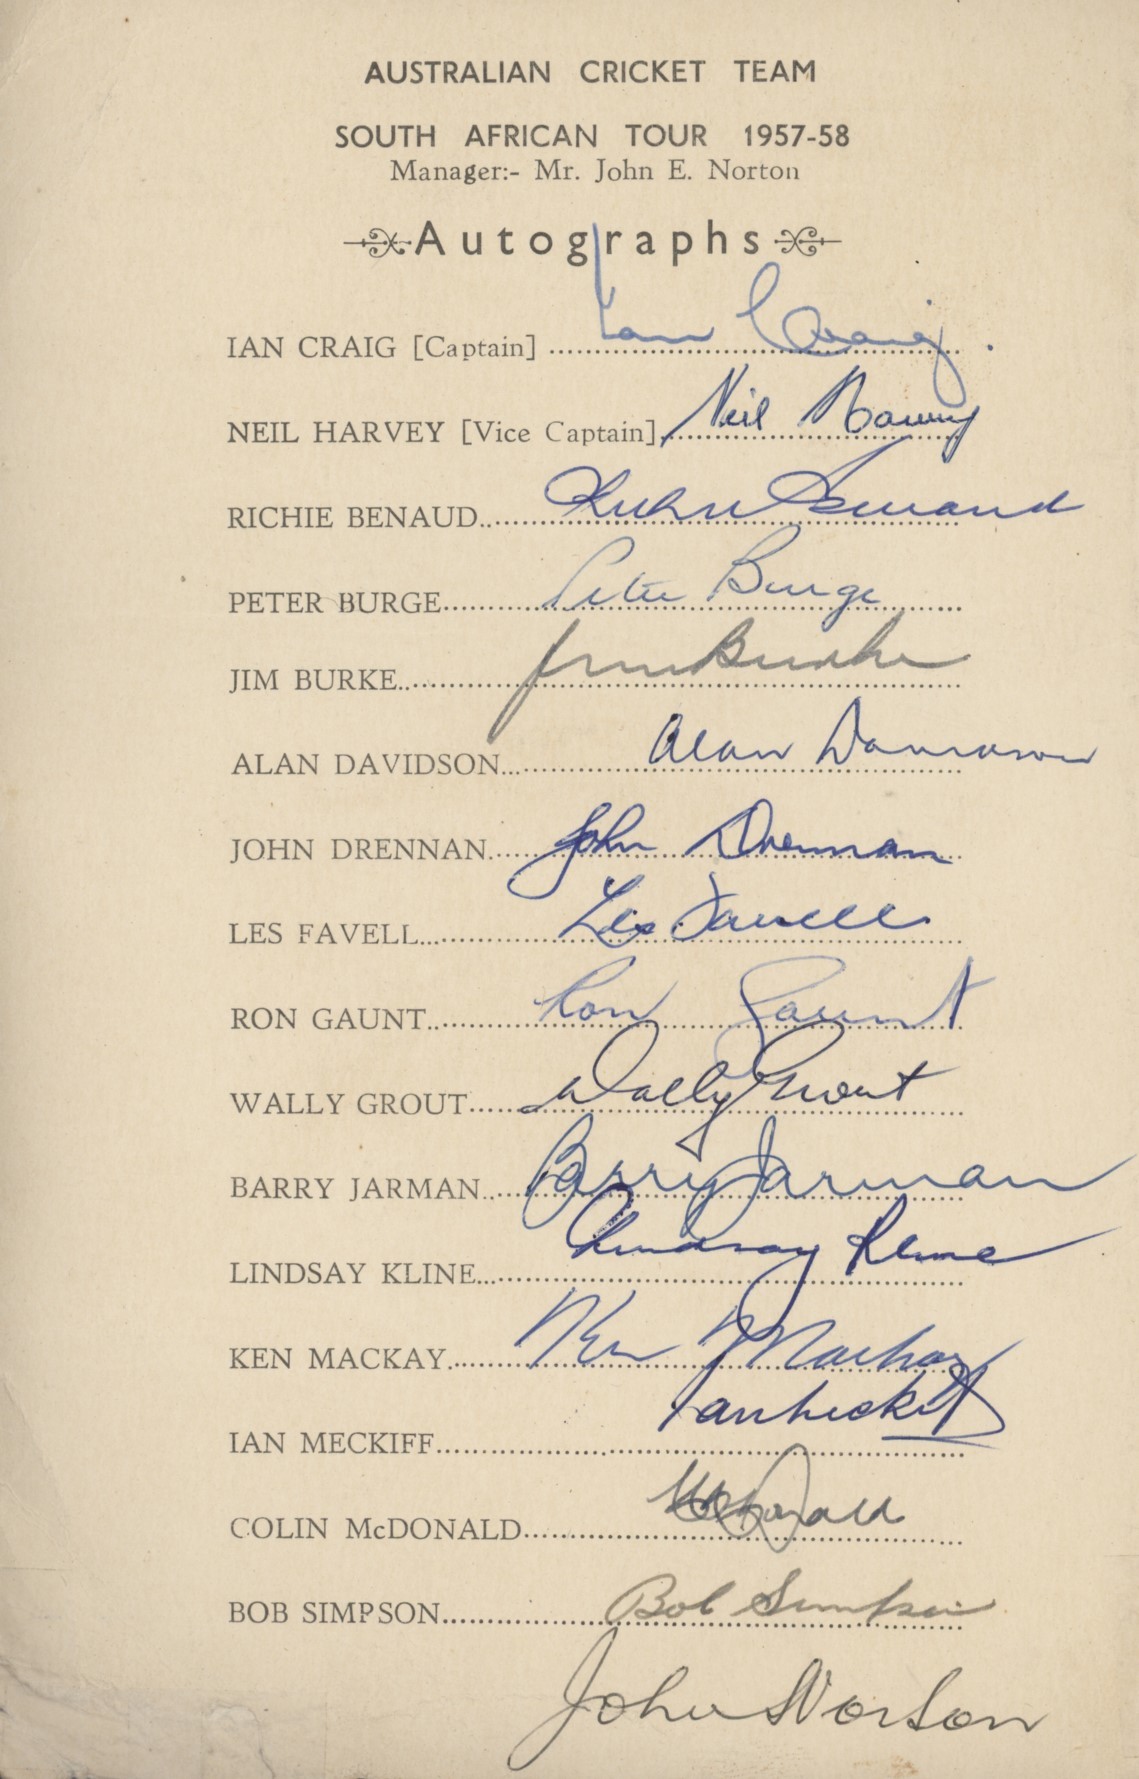 AUSTRALIAN CRICKET TEAM
SOUTH AFRICAN TOUR 1957-58
Manager:- Mr. John E. Norton
Autographs
IAN CRAIG [Captain] Ian Craig.
NEIL HARVEY [Vice Captain] Neil Harvey
RICHIE BENAUD Richie Benaud
PETER BURGE Peter Burge
JIM BURKE Jim Burke
ALAN DAVIDSON Alan Davidson
JOHN DRENNAN John Drennan
LES FAVELL Les Favell
RON GAUNT Ron Gaunt
WALLY GROUT Wally Grout
BARRY JARMAN Barry Jarman
LINDSAY KLINE Lindsay Kline
KEN MACKAY Ken Mackay
IAN MECKIFF Ian Meckiff
COLIN McDONALD McDonald
BOB SIMPSON Bob Simpson
John Norton